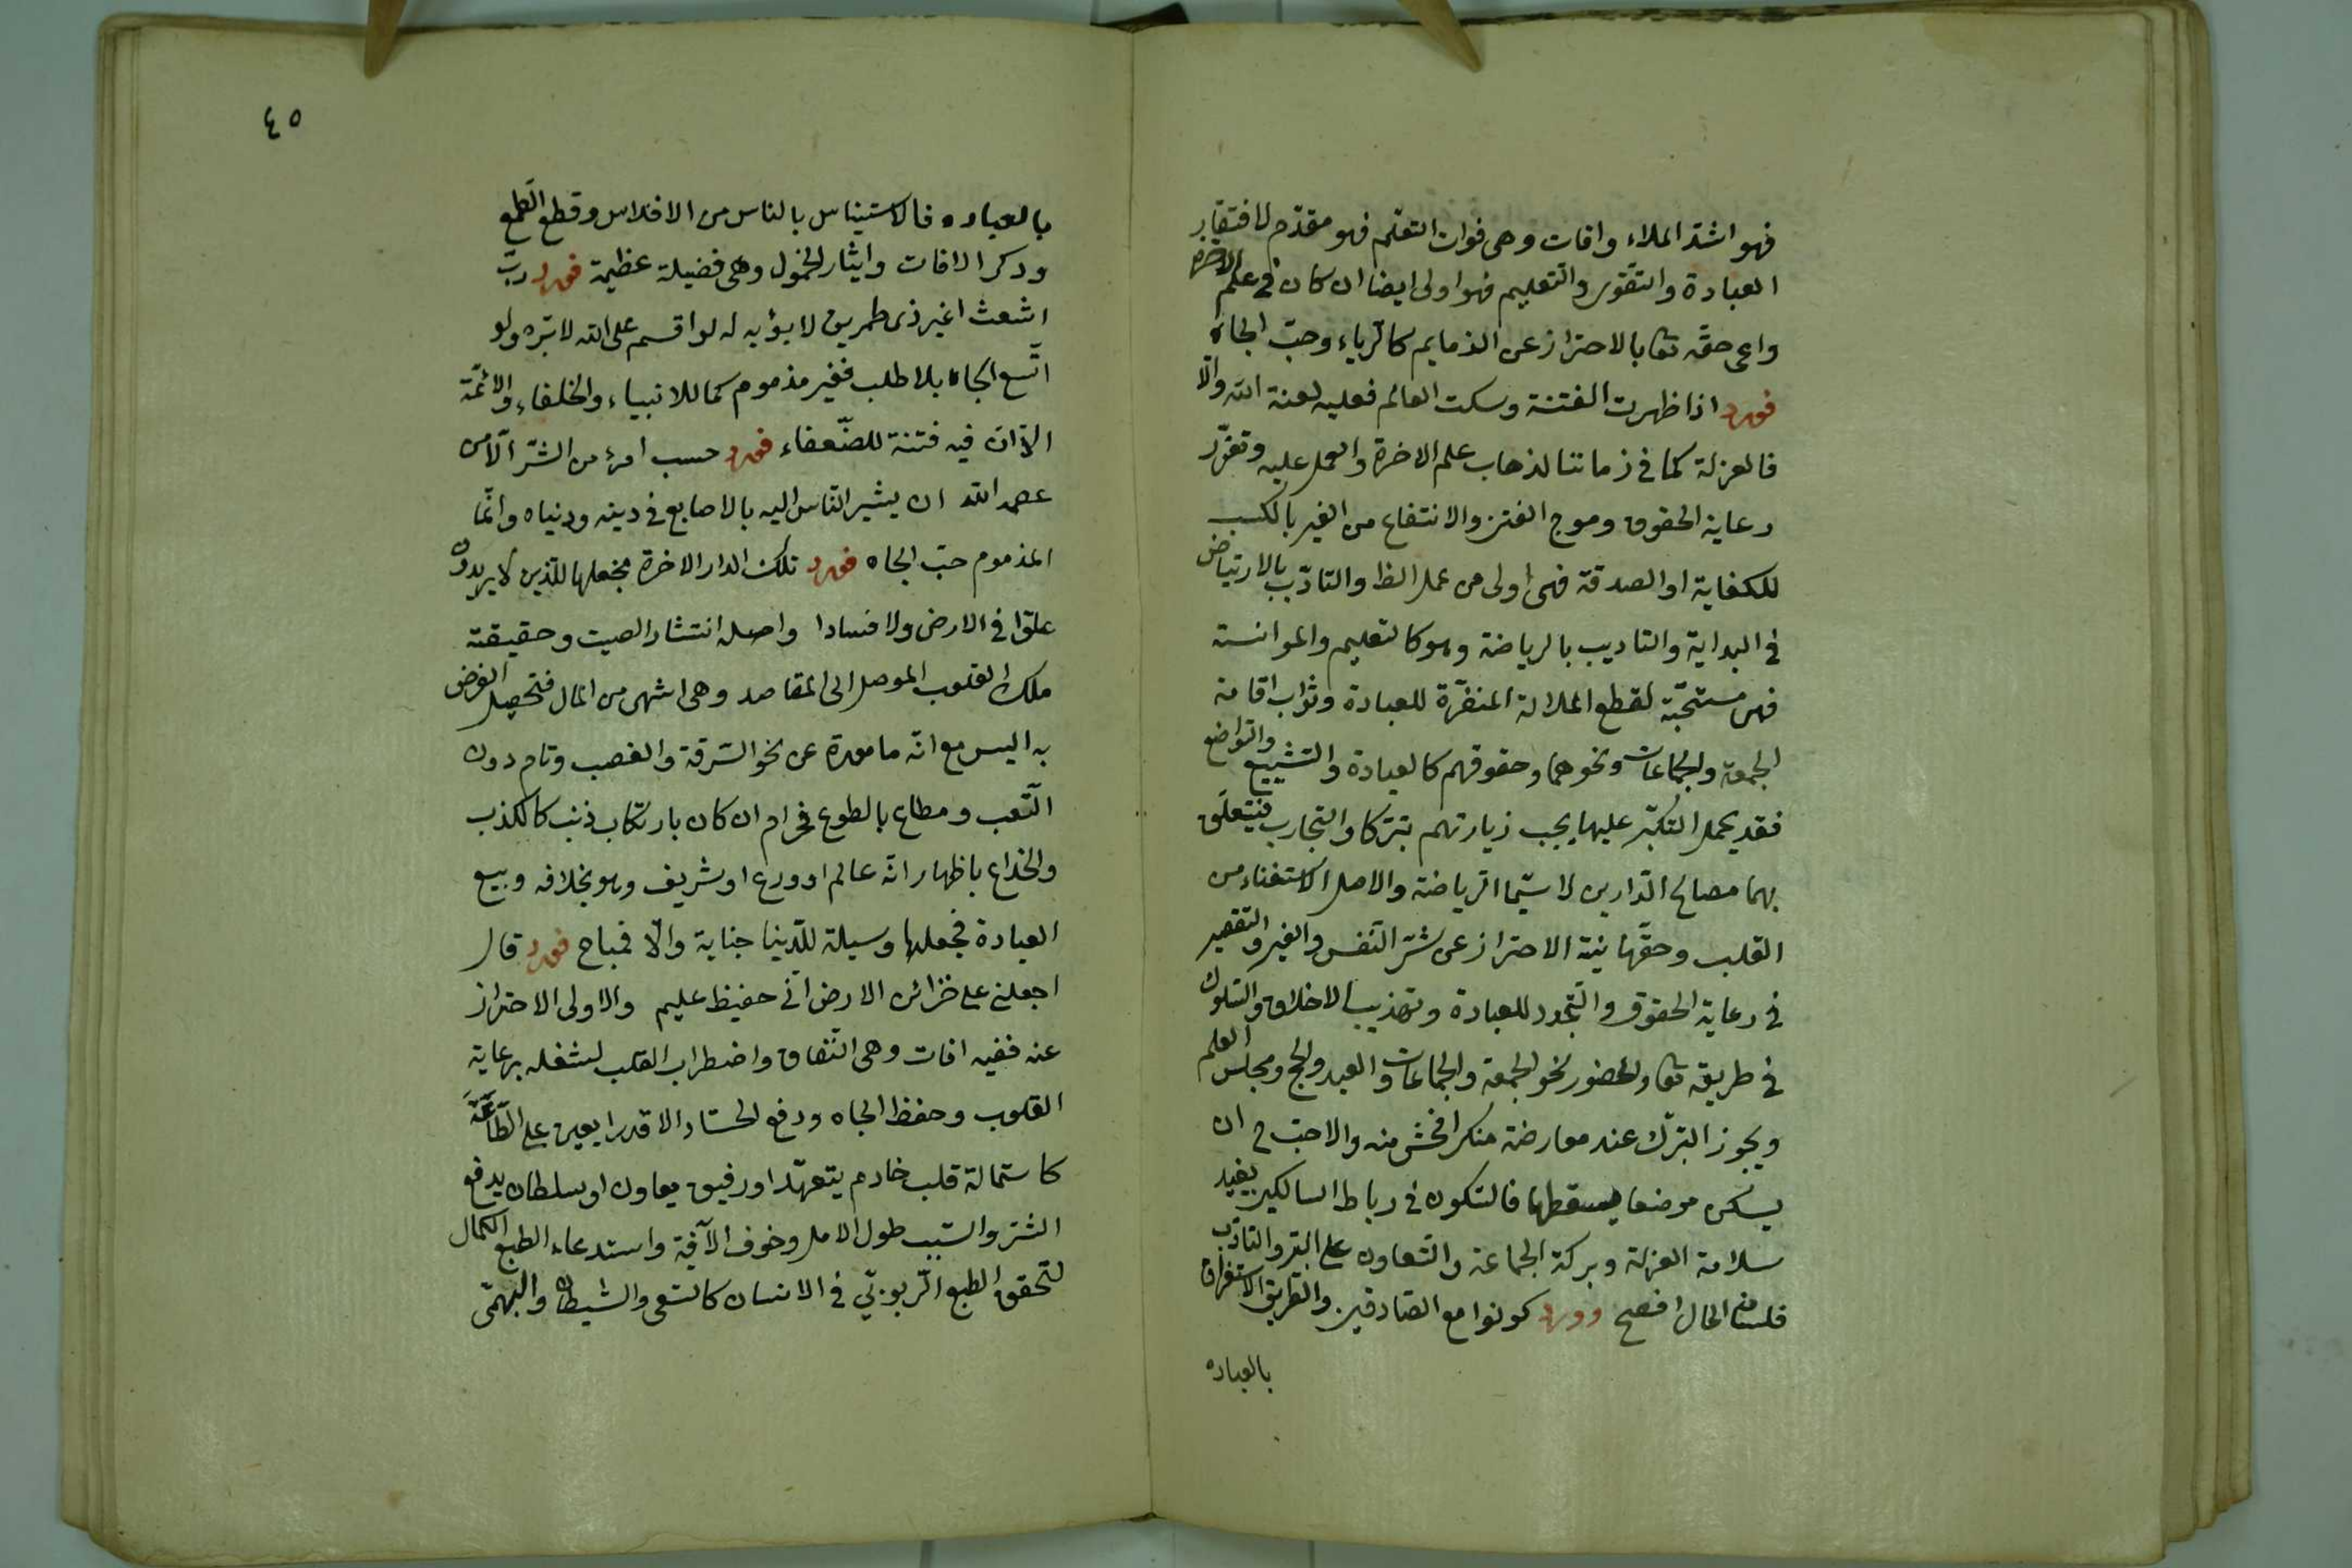 فهو اشدّ الملاء وافات وهى فوات التعلّم فهو مقدّم لافتقار
العبادة والتقوى والتعليم فهو اولى ايضا ان كان فى علم الاخرة
واعى حقّه تعا بالاحتراز عن الذمايم كالرياء وحبّ الجاه
فورد اذا ظهرت الفتنة وسكت العالم فعليه لعنة الله والّا
فالعزلة كما فى زماننا لذهاب علم الاخرة والعمل عليه وتعزّر
رعاية الحقوق وموج الفتن والانتفاع من الغير بالكسب
للكفاية او الصدقة فهى اولى من عمل الظ والتادّب بالارتياض
فى البداية والتاديب بالرياضة وهو كالتعليم والموانسة
فهى مستحبّة لقطع الملالة المنفّرة للعبادة وثواب اقامة
الجمعة والجماعات ونحوهما وحقوقهم كالعيادة والتشييع والتواضع
فقد يحمل التكبّر عليها يحب زيارتهم تبرّكا والتجارب فيتعلّق
بهما مصالح الدّارين لا سيّما الرياضة والاصل الاستغناء من
القلب وحقّها نية الاحتراز عن شرّ النّفس والغير والتقصير
فى رعاية الحقوق والتّجرد للعبادة وتهذيب الاخلاق والسّلوك
فى طريقه تعا والحضور نحو الجمعة والجماعات والعيد والحج ومجلس العلم
ويجوز الترك عند معارضة منكر افحش منه والاحبّ ح ان
يسكن موضعا يسقطها فالسّكون فى رباط السالكين يفيد
سلامة العزلة وبركة الجماعة والتّعاون على البرّ والتادّب
فلسان الحال افصح وورد كونوا مع الصّادقين والطّريق الاستغراق
بالعباده
٤٥
بالعباده فالاستيناس بالناس من الافلاس وقطع الطّمع
وذكر الافات وايثار الخمول وهى فضيلة عظيمة فورد ربّ
اشعث اغبر ذى طمرين لا يؤبه له لو اقسم على الله لابرّه ولو
اتّسع الجاه بلا طلب فغير مذموم كما للانبياء والخلفاء والائمّة
الّا انّ فيه فتنة للضّعفاء فورد حسب امرء من الشرّ الّا من
عصمه الله ان يشير النّاس اليه بالاصابع فى دينه ودنياه وانّما
المذموم حبّ الجاه فورد تلك الدار الاخرة نجعلها للّذين لا يريدون
علوّا فى الارض ولا فسادا واصله انتشار الصيت وحقيقته
ملك القلوب الموصل الى المقاصد وهى اشهى من المال فتحصيل الغرض
به اليس مع انّه مامورة عن نحو السّرقة والغصب وتام دون
التّعب ومطاع بالطوع فحرام ان كان بارتكاب ذنب كالكذب
والخداع باظهار انّه عالم او ورع او شريف وهو بخلافه وبيع
العبادة فجعلها وسيلة للدّنيا جناية والّا فمباح فورد قال
اجعلنى على خزائن الارض انّى حفيظ عليم والاولى الاحتراز
عنه ففيه افات وهى النّفاق واضطراب القلب لشغله برعاية
القلوب وحفظ الجاه ودفع الحسّاد الا قدرا يعين على الطّاعة
كاستمالة قلب خادم يتعهّد او رفيق يعاون او سلطان يدفع
الشرّ والسّبب طول الامل وخوف الآفة واستدعاء الطبع الكمال
لتحقق الطبع الرّبوبىّ فى الانسان كالسّبعى والشيطان والبهمّى